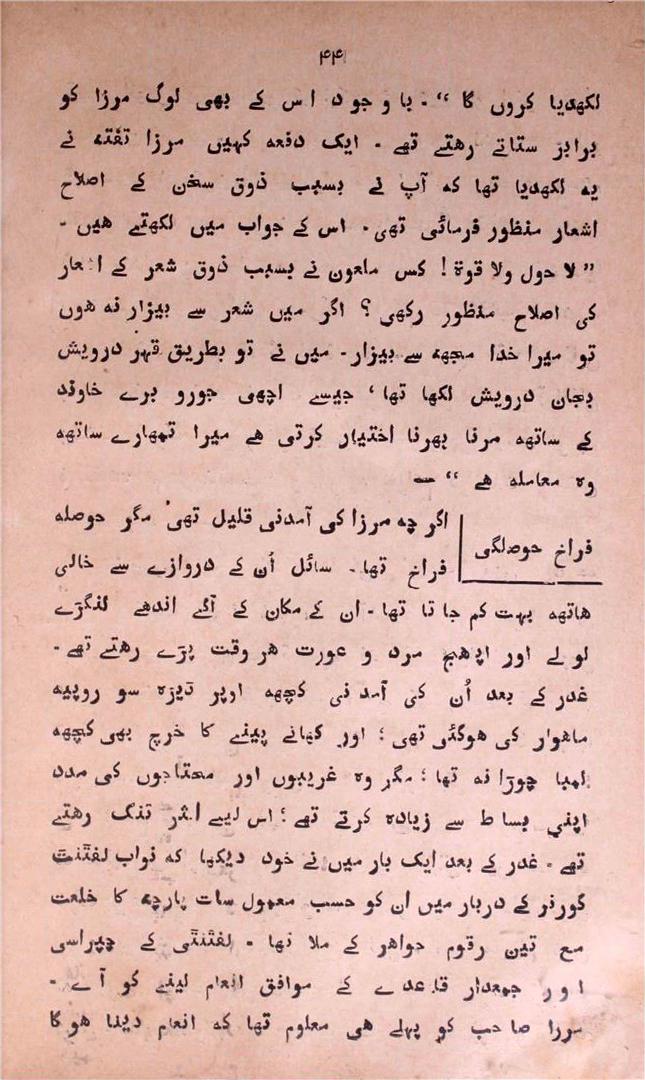 ۴۴
لکھدیا کروں گا “ - با و جو د اس کے بھی لوگ مرزا کو
برابر ستاتے رھتے تھے - ایک دفعہ کہیں مرزا تفتہ نے
یہ لکھدیا تھا کہ آپ نے بسبب ذوق سخن کے اصلاح
اشعار منظور فرمائی تھی - اس کے جواب میں لکھتے ھیں -
” لا حول ولا قوة ! کس ملعون نے بسبب ذوق شعر کے اشعار
کی اصلاح منظور رکھی ؟ اگر میں شعر سے بیزار نہ ھوں
تو میرا خدا مجھہ سے بیزار - میں نے تو بطریق قہر درویش
بجان درویش لکھا تھا ‘ جیسے اچھی جورو برے خاوند
کے ساتھہ مرنا بھرنا اختیار کرتی ھے میرا تمھارے ساتھہ
وہ معاملہ ھے “ —
فراخ حوصلگی
اگر چہ مرزا کی آمدنی قلیل تھی ‘ مگر حوصلہ
فراخ تھا - سائل اُن کے دروازے سے خالی
ھاتھہ بہت کم جا تا تھا - ان کے مکان کے آگے اندھے لنگڑے
لو لے اور اپھیج مرد و عورت ھر وقت پڑے رھتے تھے -
غدر کے بعد اُن کی آمد نی کچھہ اوپر ڈیڑہ سو روپیہ
ماھوار کی ھوگئی تھی ؛ اور کھانے پینے کا خرچ بھی کچھہ
لمبا چوڑا نہ تھا ؛ مگر وہ غریبوں اور محتاجوں کی مدد
اپنی بساط سے زیادہ کرتے تھے ؛ اس لیے اکثر تنگ رھتے
تھے - غدر کے بعد ایک بار میں نے خود دیکھا کہ نواب لفتننت
گورنر کے دربار میں ان کو حسب معمول سات پارچہ کا خلعت
مع تین رقوم جواھر کے ملا تھا - لفتنتی کے چپراسی
اور جمعدار قاعدے کے موافق انعام لینے کو آے -
مرزا صاحب کو پہلے ھی معلوم تھا کہ انعام دینا ھوگا